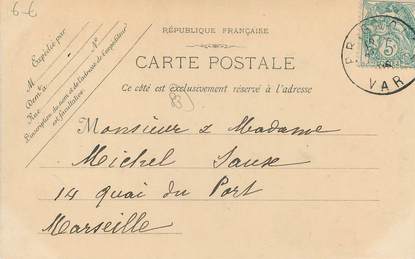 6-6
RÉPUBLIQUE FRANÇAISE
CARTE POSTALE
Ce côté est exclusivement réservé à l'adresse
Expédié par
M
Demt à
Rue N°
L'inscription du nom et de l'adresse de l'expéditeur
est facultative.
5
VAR
Monsieur & Madame
Michel
14 quai du Port
Marseille